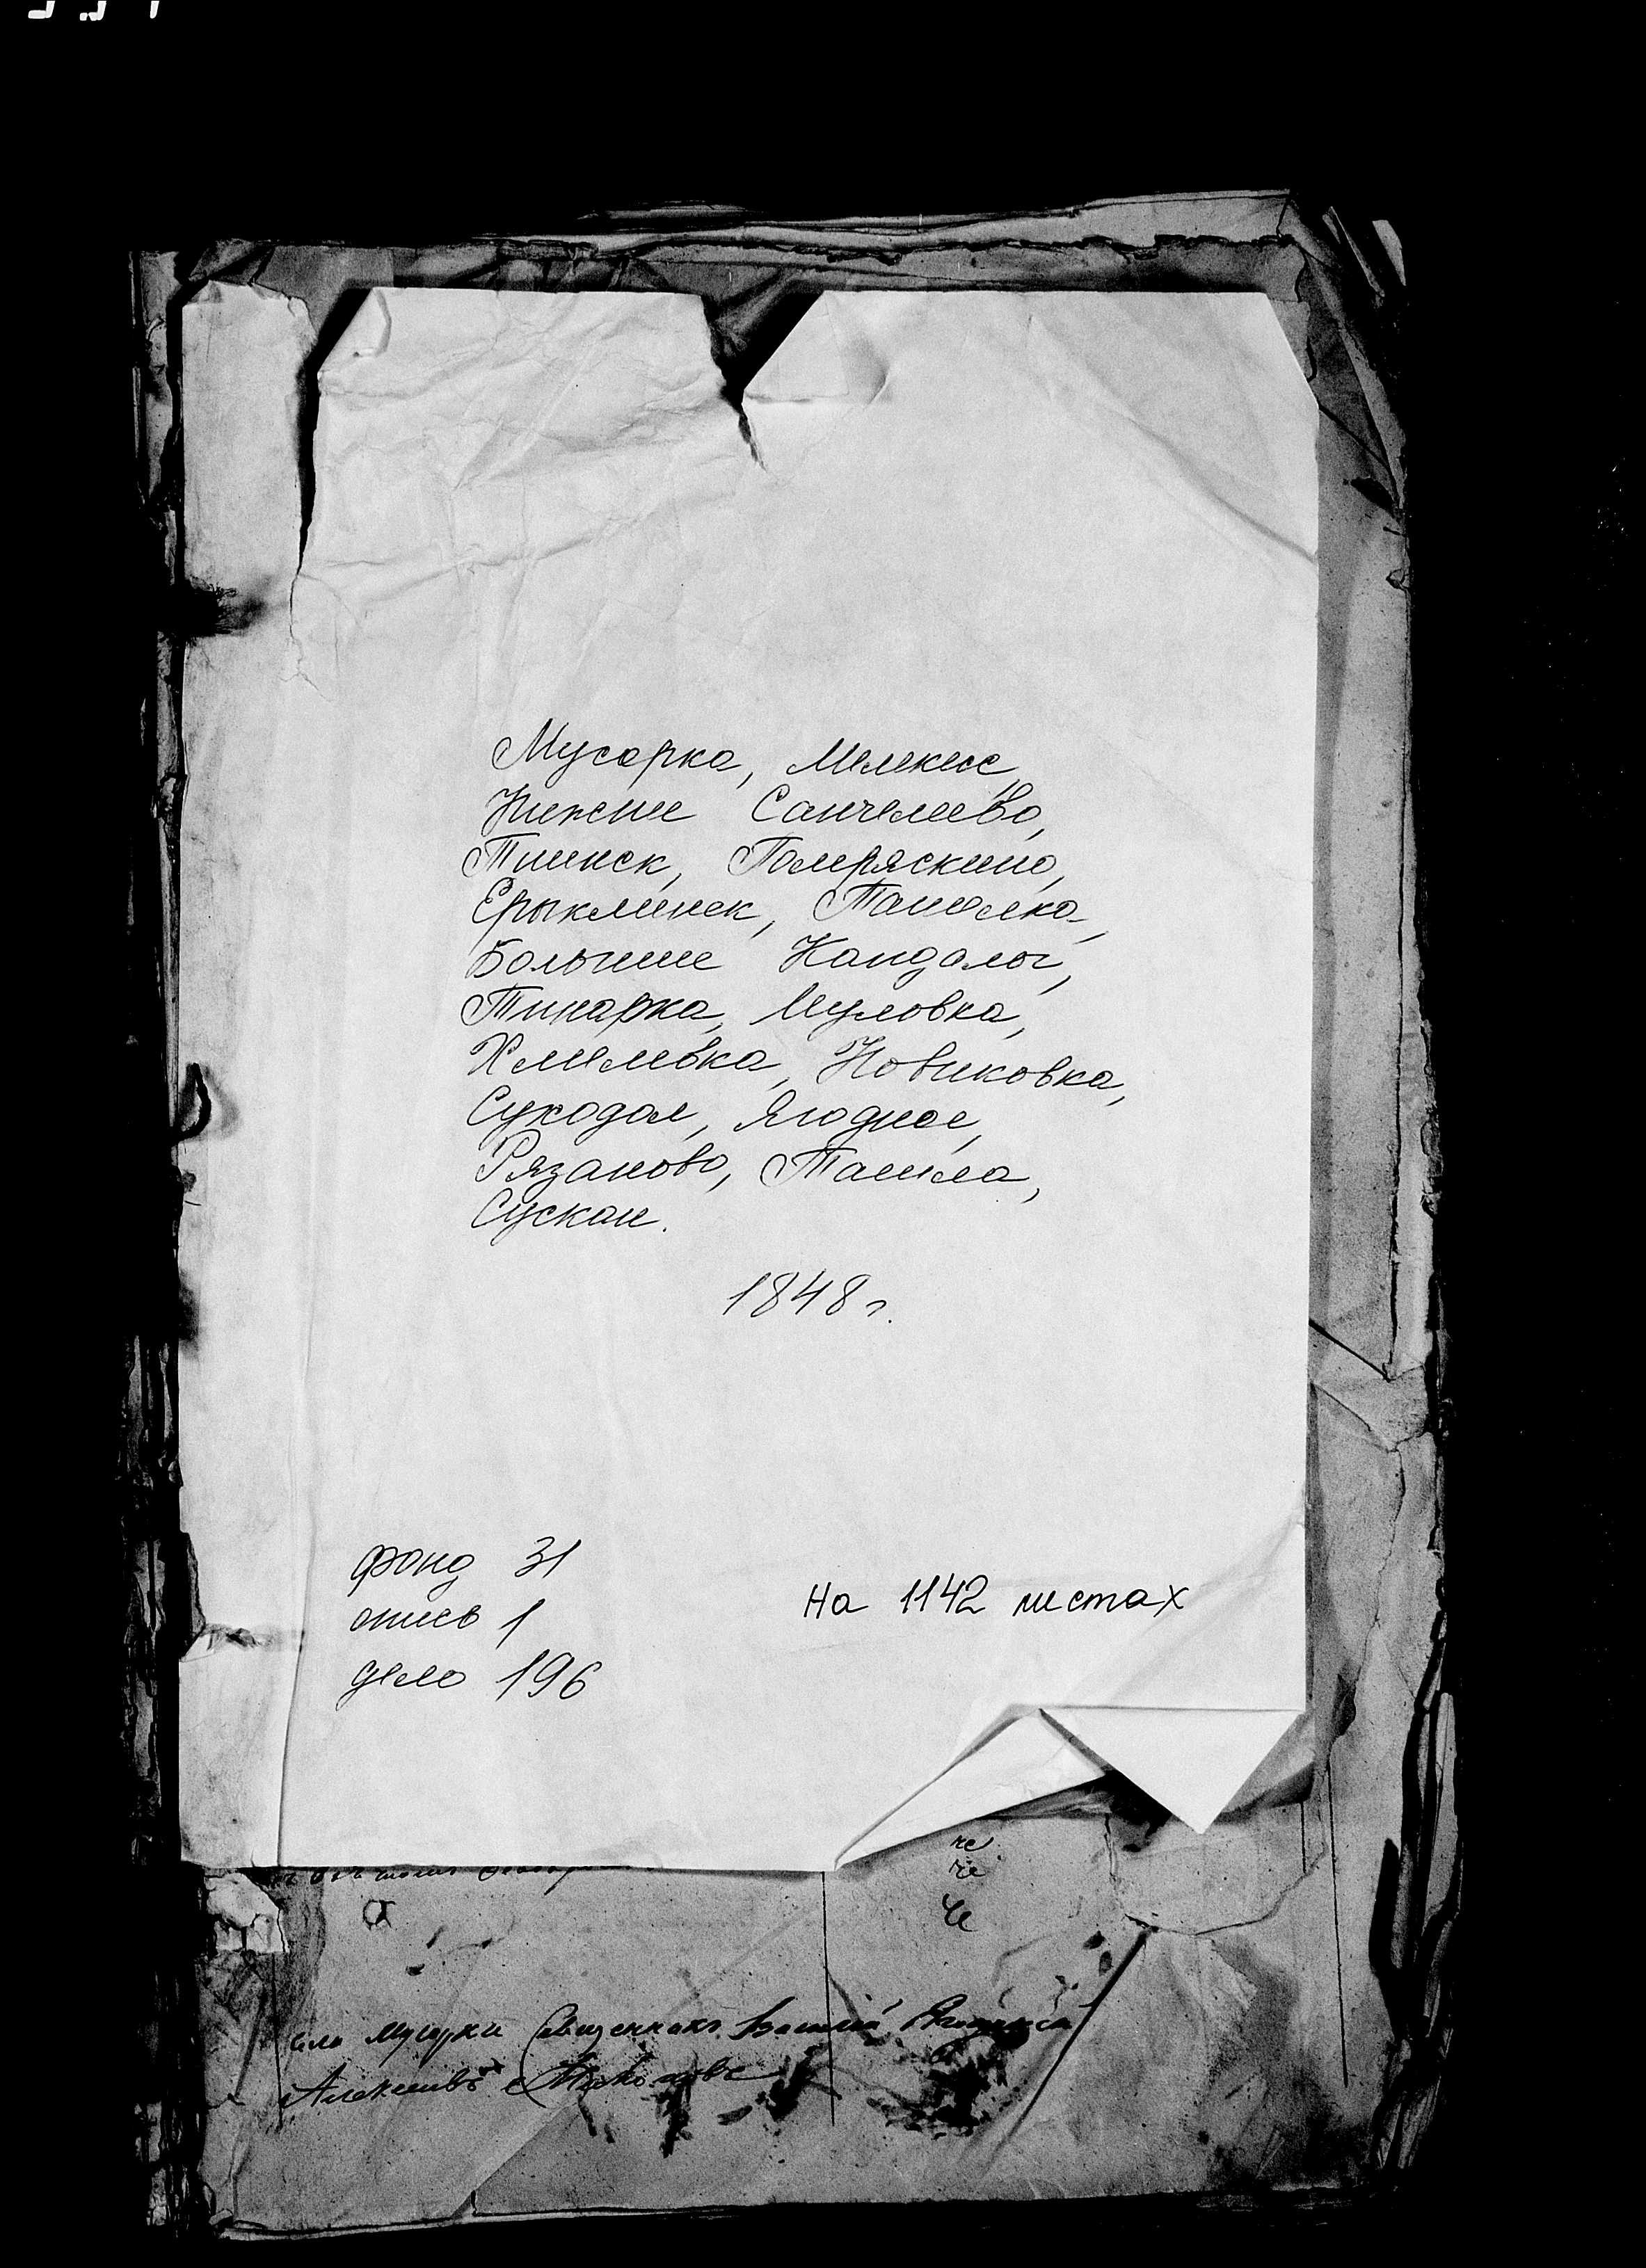 Мусорка, Мелекесс,
Нижнее Санчелеево,
Тиинск, Помряскино,
Ерыклинск, Ташелка,
Большие Кандалы,
Тинарка, Муловка,
Хмелевка, Новиковка,
Суходол, Ягодное,
Рязаново, Ташла,
Сускан.
1848 г.
фонд 31
опись 1
дело 196
На 1142 листах
че
че
Че
села Мусорки Священникъ
Алексѣевъ